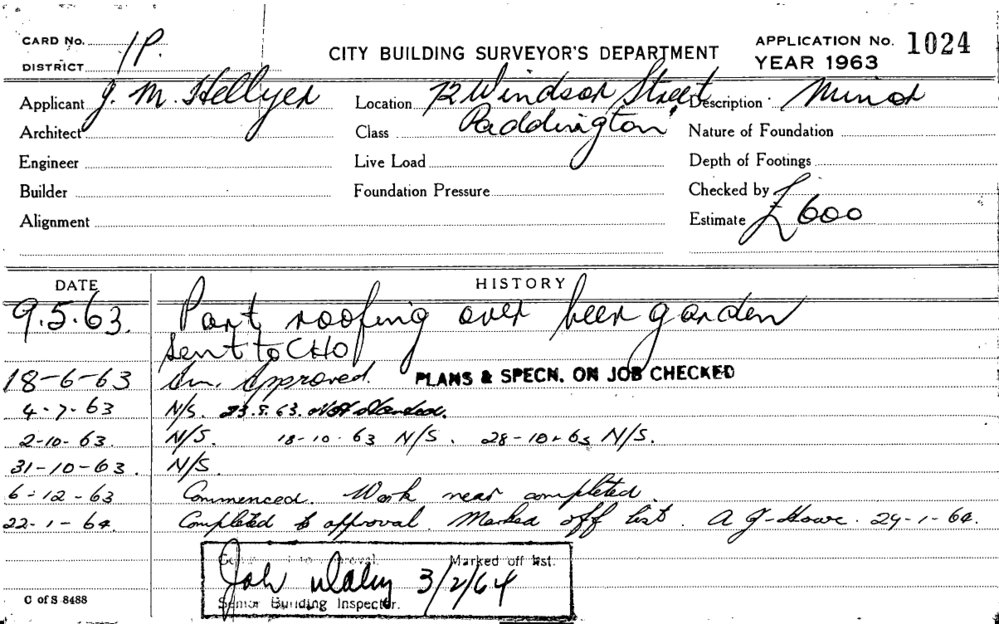 CARD No. 1P.
DISTRICT
CITY BUILDING SURVEYOR'S DEPARTMENT
APPLICATION No. 1024
YEAR 1963
Applicant J. M. Hellyer
Location 72 Windsor Street
Paddington
Description Minor
Architect
Class
Nature of Foundation
Engineer
Live Load
Depth of Footings
Builder
Foundation Pressure
Checked by
Alignment
Estimate £600
DATE
HISTORY
9.5.63. Part roofing over beer garden
Sent to CHO
18-6-63 Approved. PLANS & SPECN. ON JOB CHECKED
4-7-63 N/S. 23.8.63. Not Started.
2-10-63. N/S. 18-10-63 N/S. 28-10-63 N/S.
31-10-63. N/S.
6-12-63 Commenced. Work near completed.
22-1-64. Completed to approval. Marked off list. A J Howe. 29-1-64.
Marked off list.
3/2/64
Senior Building Inspector.
C of S 8488